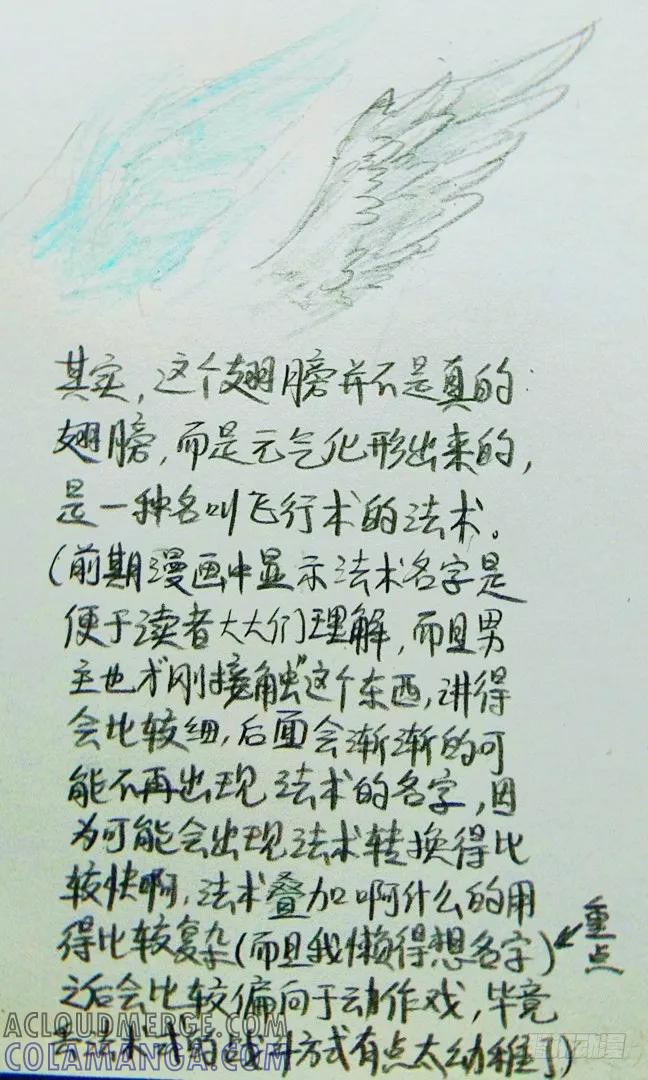 其实，这个翅膀并不是真的
翅膀，而是元气化形出来的，
是一种名叫飞行术的法术。
(前期漫画中显示法术名字是
便于读者大大们理解，而且男
主也才刚接触"这个东西，讲得
会比较细，后面会渐渐的可
能不再出现法术的名字，因
为可能会出现法术转换得比
较快啊，法术叠加啊什么的用
得比较复杂(而且我懒得想名字)
重点
之后会比较偏向于动作戏，毕竟
的战斗方式有点太幼稚了)
ACLOUDMERGE.COM
COLAMANGA.COM